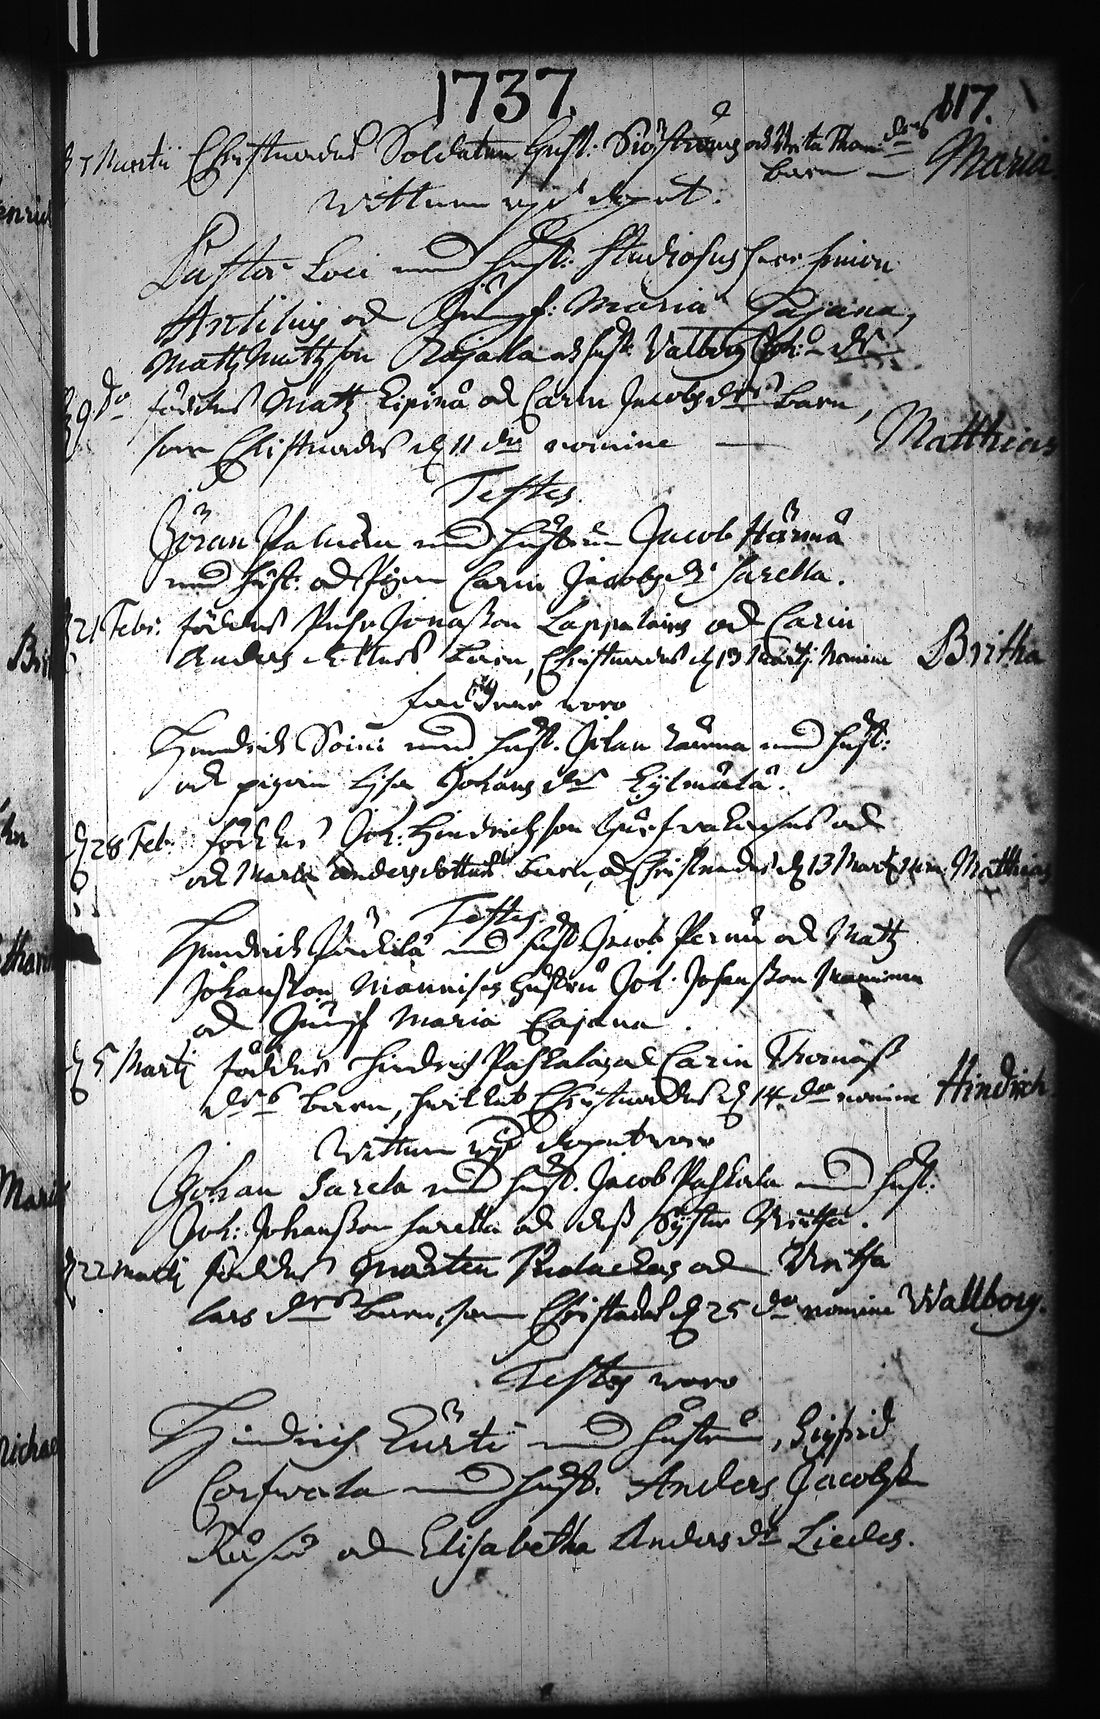 1737.
117.
7 Martii Christnades Soldaten Gust: Siöströms och Brita Thomædr
barn — Maria.
Wittnen
Pastor Loci med hust: Studiosus Simon
Antilius och Jungf: Maria Cajana,
Matz Mattzson Rajala och hust: Valborg
9 do föddes Matz Lipiäs och Carin Jacobsdrs barn,
som Christnades d. 11 do nomine — Matthias
Testes
Göran med hustru Jacob Härmä
med hust: och Pigan Carin Jacobsdr Sarella.
21 Febr: föddes Johansson Lappalaines och Carin
Anders dotters barn, Christnades d. 13 Martij Nomine Britha
faddrar woro
Hendrich Soini med hust. Johan med hust:
och pigan Lisa Johansdr Kylmälä.
28 Feb. föddes Joh: Hendrichson och
och Maria Anders dotters barn, och Christnades d. 13 Martij Nom: Matthias
Testes
Hendrich med hust. Jacob Pernu och Matz
Johansson Mannises hustru Joh: Johansson
och Jungf Maria Cajana
5 Martij föddes Hindrich Paskalas och Carin Thomæ
drs barn, hwilket Christnades d. 14 do nomine Hindrich.
Wittnen woro
Johan Sarela med hust. Jacob Paskala med hust:
Joh: Johansson Sarella och dess Syster Britha.
22 Martij föddes Mårten och Britha
Lars drs barn, som Christnades d. 25 do nomine Wallborg.
Testes woro
Hindrich Kurti med hustru, Sigfrid
Corfwala med hust. Anders Jacobss.
och Elisabetha Andersdr Liedes.